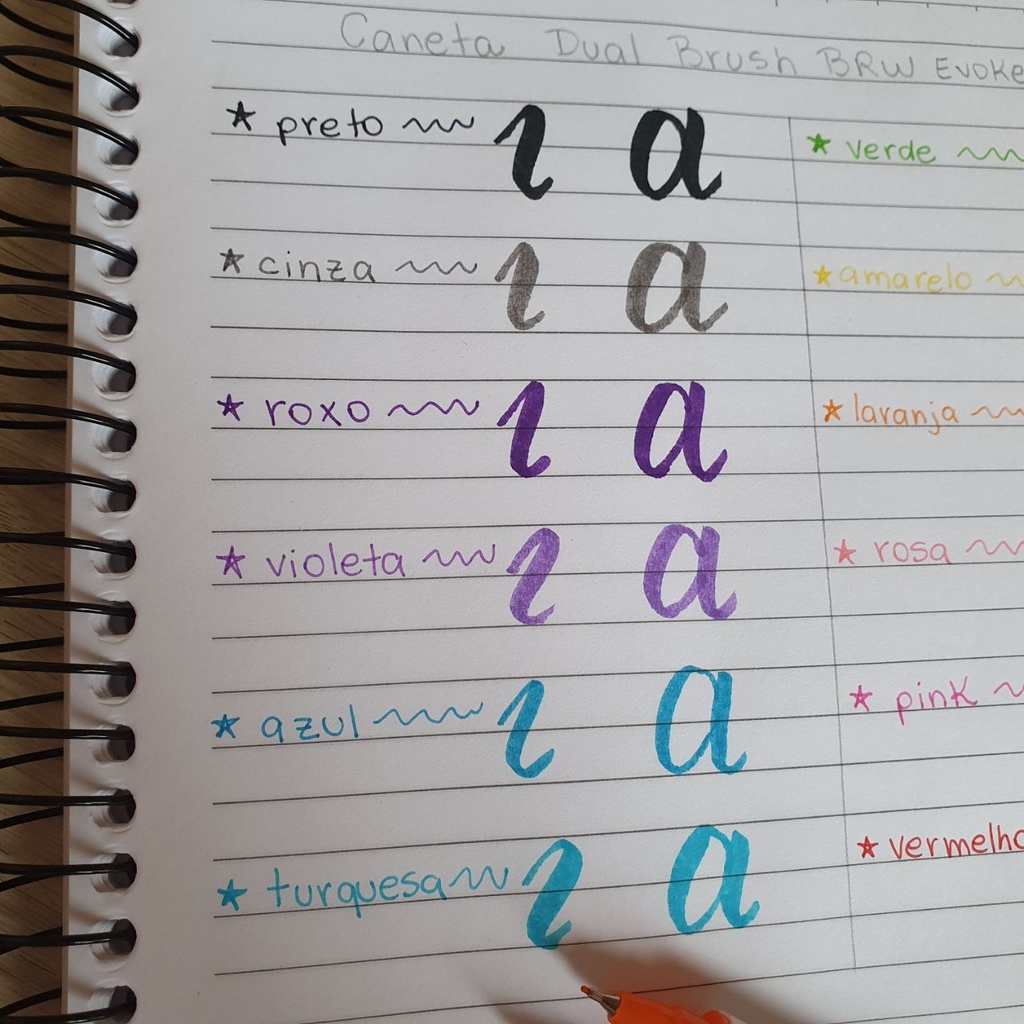 Caneta Dual Brush BRW Evoke
* preto ı a
* cinza ı a
* roxo ı a
* violeta ı a
* azul ı a
* turquesa ı a
* verde
* amarelo
* laranja
* rosa
* pink
* vermelho